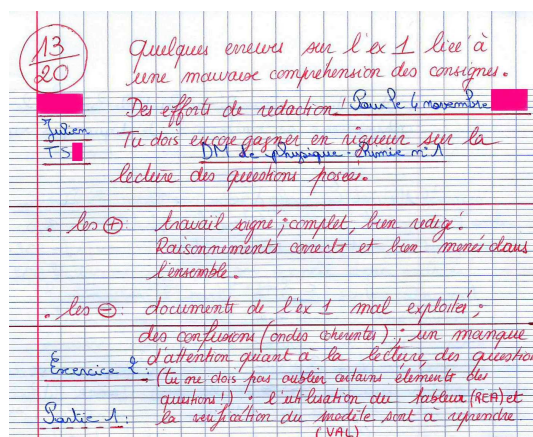 13
20
Quelques erreurs sur l'ex 1 liée à
une mauvaise compréhension des consignes.
Des efforts de rédaction! Pour le 4 novembre
Julien
Tu dois encore gagner en rigueur sur la
TS
DM de physique-chimie n°1
lecture des questions posées.
. les ⊕: travail soigné, complet, bien rédigé.
Raisonnements corrects et bien menés dans
l'ensemble.
. les ⊖: documents de l'ex 1 mal exploités;
des confusions (ondes cohérentes); un manque
d'attention quant à la lecture des question
Exercice 2:
(tu ne dois pas oublier certains éléments des
questions!); l'utilisation du tableur (REA) et
Partie 1:
la vérification du modèle sont à reprendre
(VAL)